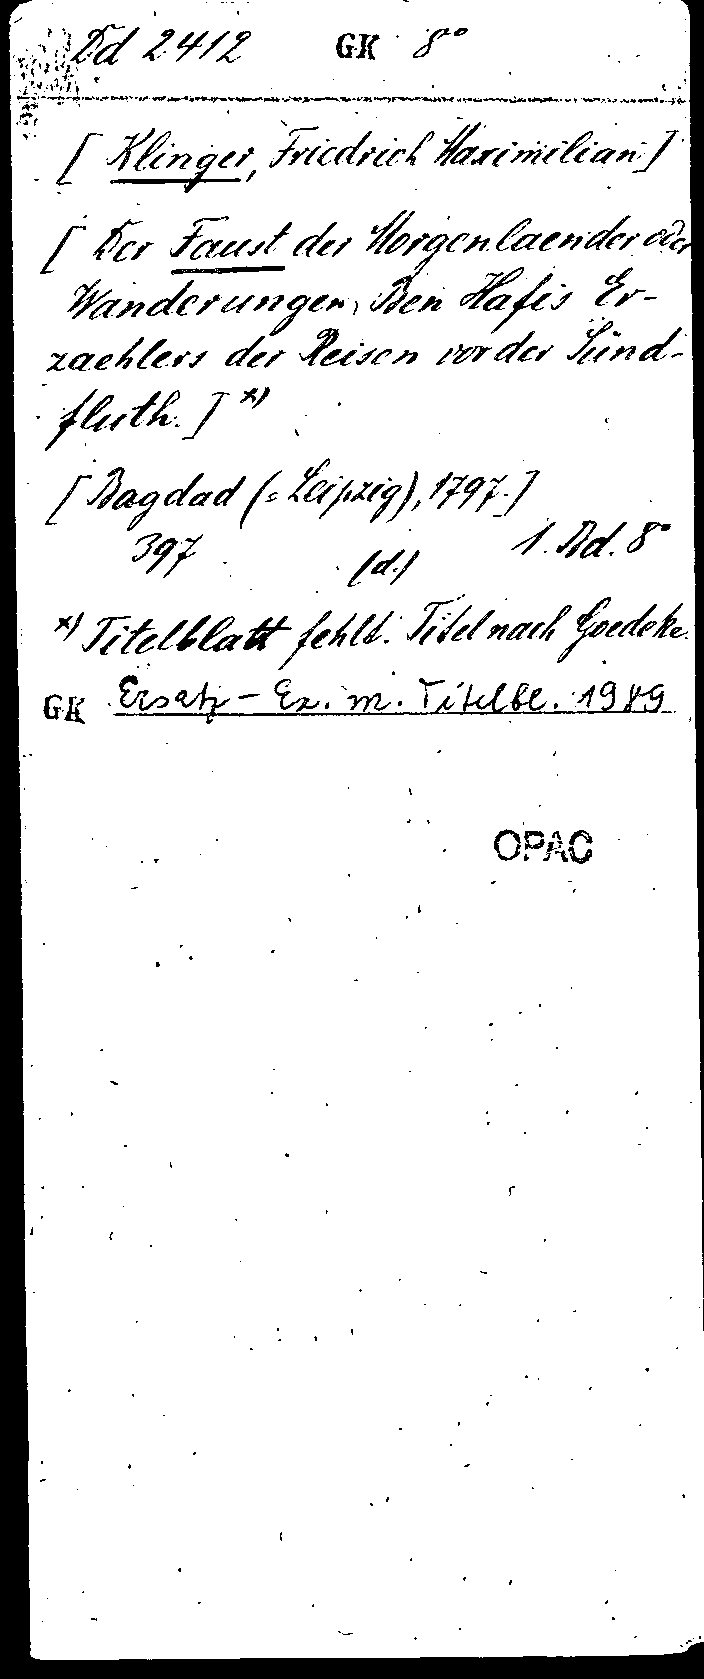 Dd 2412 GK 8°°
[ Klinger, Friedrich Maximilian ]
[ Der Faust der Morgenlaender oder
Wanderungen, Ben Hafis Er-
zaehlers der Reisen vor der Sünd-
fluth. ] x)
[ Bagdad (= Leipzig), 1797. ]
397 (d.) 1. Bd. 8°
x) Titelblatt fehlt. Titel nach Goedeke.
GK Ersatz-Ex. m. Titelbl. 1989
OPAC